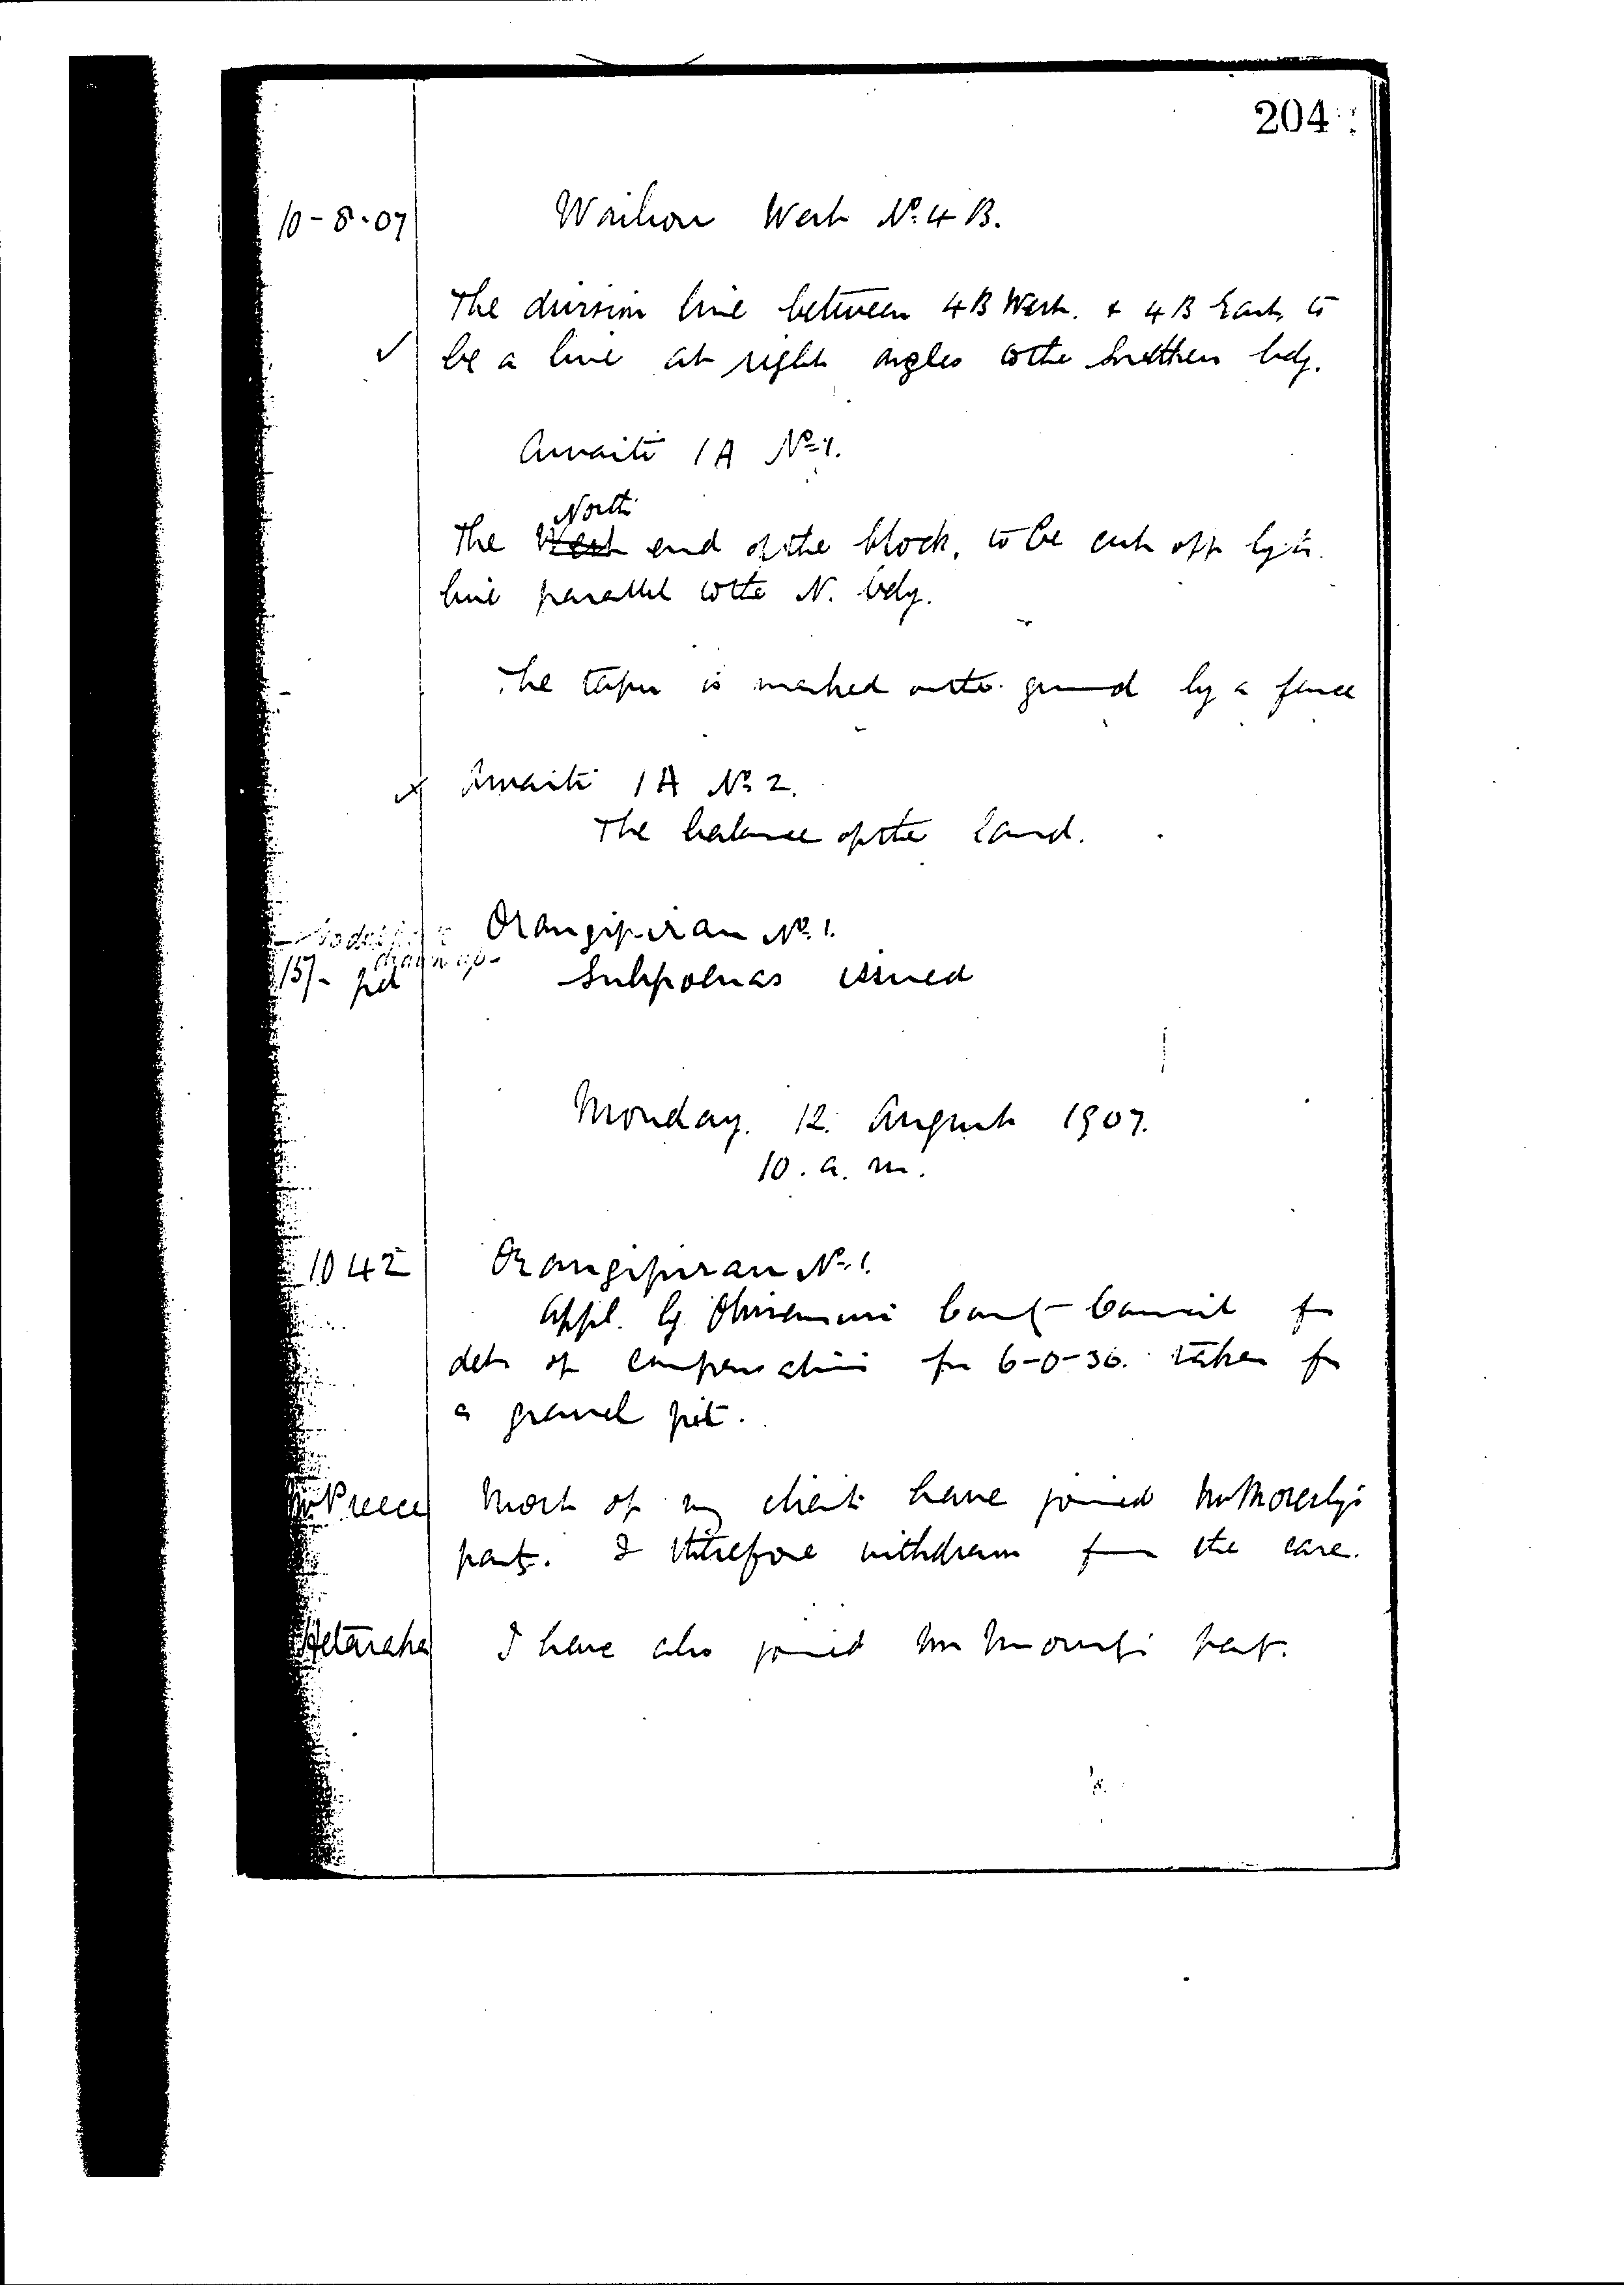 204
10-8-07 Waihou West No. 4 B.
The division line between 4B West. & 4B East, to
be a line at right angles to the Southern bdy.
Awaiti 1A No. 1.
North
The West end of the block, to be cut off by a
line parallel to the N. bdy.
The tapu is marked on the ground by a fence
Awaiti 1A No 2.
The balance of the land.
Orangipirau No. 1.
drawn up
15/- pd Subpoenas issued
Monday. 12. August 1907.
10. a. m.
1042 Orangipirau No. 1.
Appl. by Ohinemuri County Council for
detn of compensation for 6-0-36. taken for
a gravel pit.
Mr Preece Most of my clients have joined Mr Moresby's
party. I therefore withdraw from the case.
Hetaraka I have also joined Mr party.